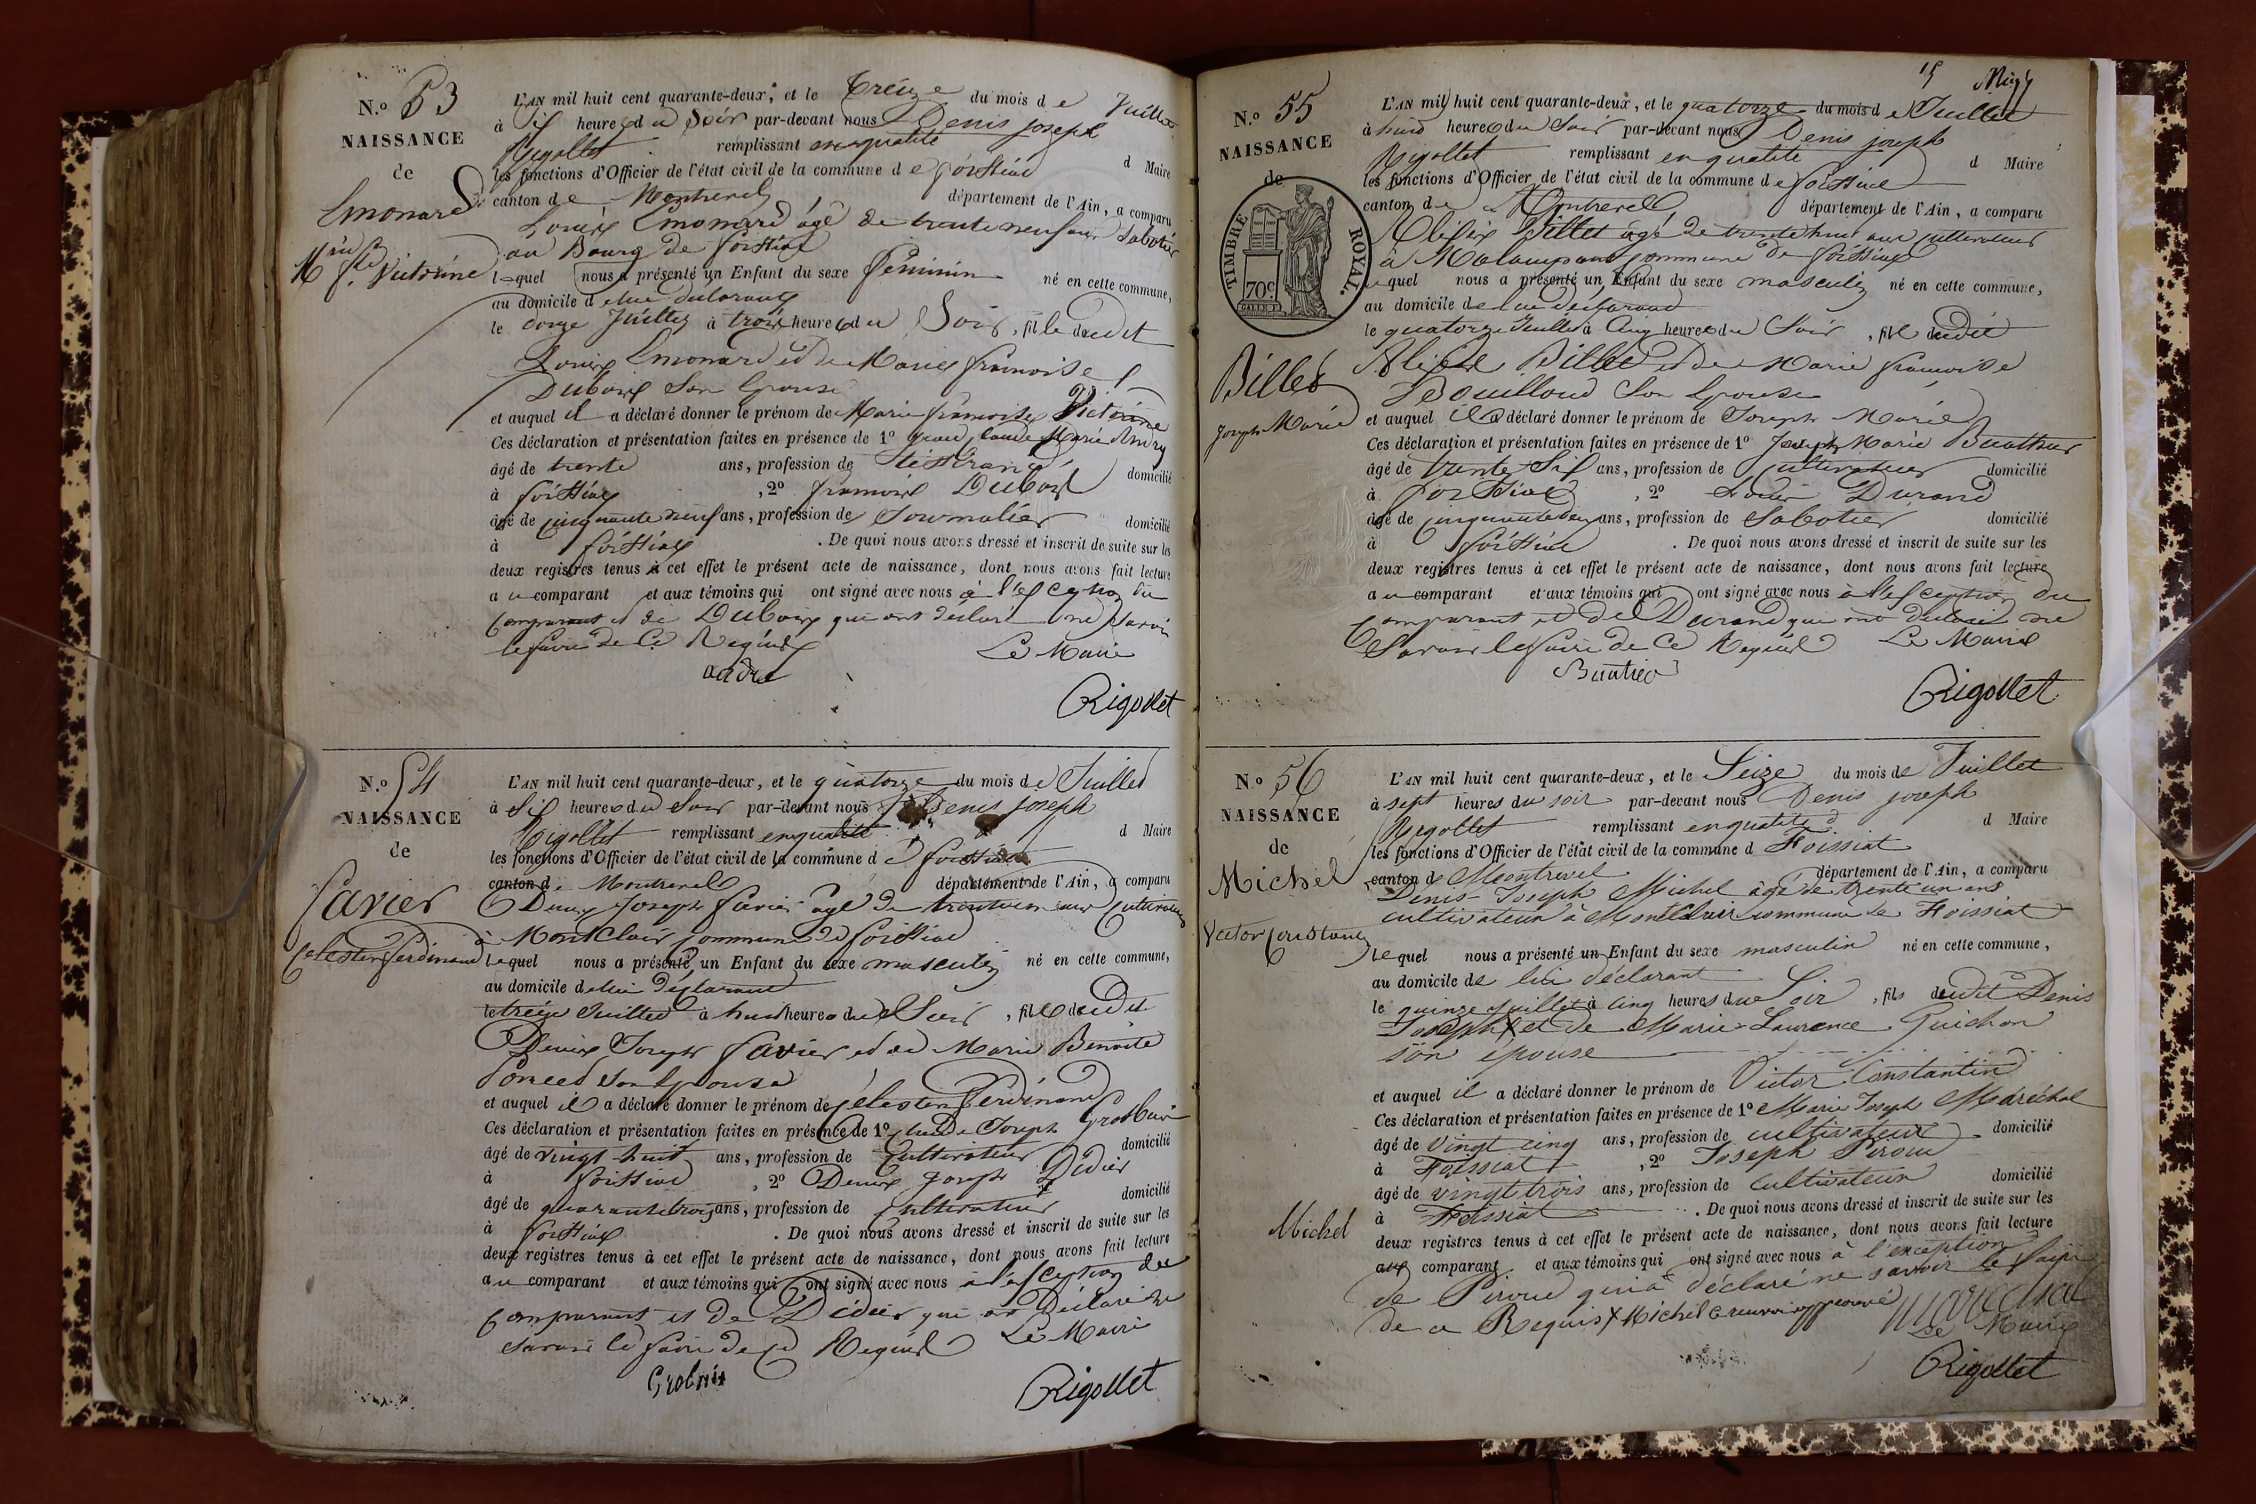 N.o 53
NAISSANCE
de
Emonard
M.rie f.se Victorine
L'AN mil huit cent quarante-deux, et le treize du mois de Juillet
à Six heures du Soir par-devant nous Denis joseph
Rigollet remplissant en qualité d Maire
les fonctions d'Officier de l'état civil de la commune de foissiat
canton de Montrevel département de l'Ain, a comparu
Louis Emonard âgé de trente neuf ans Sabotier
au Bourg de foissiat
lequel nous a présenté un Enfant du sexe féminin né en cette commune,
au domicile de lui déclarant
le douze Juillet à trois heures du Soir, fille dudit
Louis Emonard et de Marie françoise
Dubois Son Epouse
et auquel il a déclaré donner le prénom de Marie françoise Victorine
Ces déclaration et présentation faites en présence de 1o Claude Marie
âgé de trente ans, profession de domicilié
à foissiat, 2o françois Dubois
âgé de cinquante neuf ans, profession de Journalier domicilié
à foissiat. De quoi nous avons dressé et inscrit de suite sur les
deux registres tenus à cet effet le présent acte de naissance, dont nous avons fait lecture
au comparant et aux témoins qui ont signé avec nous à l'exception du
comparant et de Dubois qui ont déclaré ne Savoir
le faire de Ce Requis Le Maire
Rigollet
N.o 54
NAISSANCE
de
favier
Celestin ferdinand
L'AN mil huit cent quarante-deux, et le quatorze du mois de Juillet
à Six heures du Soir par-devant nous Denis joseph
Rigollet remplissant en qualité d Maire
les fonctions d'Officier de l'état civil de la commune de foissiat
canton de Montrevel département de l'Ain, a comparu
Denis Joseph favier âgé de trente ans Cultivateur
à Montclair commune de foissiat
lequel nous a présenté un Enfant du sexe masculin né en cette commune,
au domicile de lui déclarant
le treize Juillet à huit heures du Soir, fils dudit
Denis Joseph favier et de Marie Benoite
Poncet Son Epouse
et auquel il a déclaré donner le prénom de Célestin ferdinand
Ces déclaration et présentation faites en présence de 1o Claude Joseph
âgé de vingt huit ans, profession de Cultivateur domicilié
à foissiat, 2o Denis Joseph Didier
âgé de quarante trois ans, profession de Cultivateur domicilié
à foissiat. De quoi nous avons dressé et inscrit de suite sur les
deux registres tenus à cet effet le présent acte de naissance, dont nous avons fait lecture
au comparant et aux témoins qui ont signé avec nous à l'exception du
comparant et de Didier qui ont déclaré ne
Savoir le faire de ce Requis Le Maire
Rigollet
15
N.o 55
NAISSANCE
de
TIMBRE ROYAL.
70c
Billet
Joseph Marie
L'AN mil huit cent quarante-deux, et le quatorze du mois de Juillet
à huit heures du Soir par-devant nous Denis joseph
Rigollet remplissant en qualité d Maire
les fonctions d'Officier de l'état civil de la commune de foissiat
canton de Montrevel département de l'Ain, a comparu
Billet âgé de trente huit ans cultivateur
à commune de foissiat
lequel nous a présenté un Enfant du sexe masculin né en cette commune,
au domicile de lui déclarant
le quatorze Juillet à Cinq heures du Soir, fils dudit
Billet et de Marie françoise
Son Epouse
et auquel il a déclaré donner le prénom de Joseph Marie
Ces déclaration et présentation faites en présence de 1o Joseph Marie
âgé de trente Six ans, profession de Cultivateur domicilié
à foissiat, 2o Durand
âgé de cinquante deux ans, profession de Sabotier domicilié
à foissiat. De quoi nous avons dressé et inscrit de suite sur les
deux registres tenus à cet effet le présent acte de naissance, dont nous avons fait lecture
au comparant et aux témoins qui ont signé avec nous à l'exception du
comparant et de Durand qui ont déclaré ne
Savoir le faire de Ce Requis Le Maire
Rigollet
N.o 56
NAISSANCE
de
Michel
Victor Constantin
Michel
L'AN mil huit cent quarante-deux, et le Seize du mois de Juillet
à sept heures du soir par-devant nous Denis joseph
Rigollet remplissant en qualité d Maire
les fonctions d'Officier de l'état civil de la commune d Foissiat
canton de Montrevel département de l'Ain, a comparu
Denis-Joseph Michel âgé de trente un ans
cultivateur à Montclair commune de Foissiat
lequel nous a présenté un Enfant du sexe masculin né en cette commune,
au domicile de lui déclarant
le quinze Juillet à cinq heures du Soir, fils dudit Denis
Joseph X et de Marie-Laurence Guichon
son épouse
et auquel il a déclaré donner le prénom de Victor Constantin
Ces déclaration et présentation faites en présence de 1o Marie Joseph Maréchal
âgé de vingt cinq ans, profession de cultivateur domicilié
à Foissiat, 2o Joseph Piroud
âgé de vingt trois ans, profession de cultivateur domicilié
à Foissiat. De quoi nous avons dressé et inscrit de suite sur les
deux registres tenus à cet effet le présent acte de naissance, dont nous avons fait lecture
aux comparant et aux témoins qui ont signé avec nous à l'exception
de Piroud qui a déclaré ne savoir le faire
de ce Requis X Michel renvoi approuvé marechal
Le Maire
Rigollet